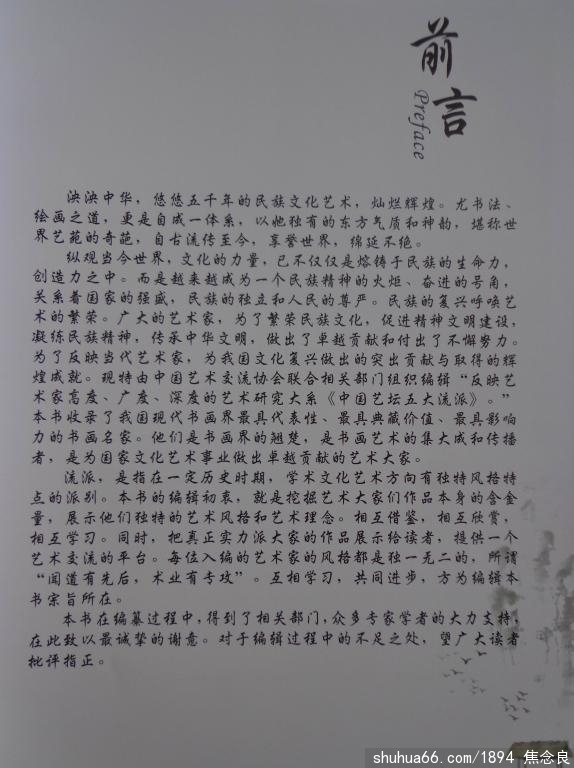 前言
Preface
泱泱中华，悠悠五千年的民族文化艺术，灿烂辉煌。尤书法、
绘画之道，更是自成一体系，以她独有的东方气质和神韵，堪称世
界艺苑的奇葩，自古流传至今，享誉世界，绵延不绝。
纵观当今世界，文化的力量，已不仅仅是熔铸于民族的生命力，
创造力之中。而是越来越成为一个民族精神的火炬、奋进的号角，
关系着国家的强盛，民族的独立和人民的尊严。民族的复兴呼唤艺
术的繁荣。广大的艺术家，为了繁荣民族文化，促进精神文明建设，
凝练民族精神，传承中华文明，做出了卓越贡献和付出了不懈努力。
为了反映当代艺术家，为我国文化复兴做出的突出贡献与取得的辉
煌成就。现特由中国艺术交流协会联合相关部门组织编辑“反映艺
术家高度、广度、深度的艺术研究大系《中国艺坛五大流派》。”
本书收录了我国现代书画界最具代表性、最具典藏价值、最具影响
力的书画名家。他们是书画界的翘楚，是书画艺术的集大成和传播
者，是为国家文化艺术事业做出卓越贡献的艺术大家。
流派，是指在一定历史时期，学术文化艺术方向有独特风格特
点的派别。本书的编辑初衷，就是挖掘艺术大家们作品本身的含金
量，展示他们独特的艺术风格和艺术理念。相互借鉴，相互欣赏，
相互学习。同时，把真正实力派大家的作品展示给读者，提供一个
艺术交流的平台。每位入编的艺术家的风格都是独一无二的，所谓
“闻道有先后，术业有专攻”。互相学习，共同进步，方为编辑本
书宗旨所在。
本书在编纂过程中，得到了相关部门，众多专家学者的大力支持，
在此致以最诚挚的谢意。对于编辑过程中的不足之处，望广大读者
批评指正。
shuhua66.com/1894 焦念良